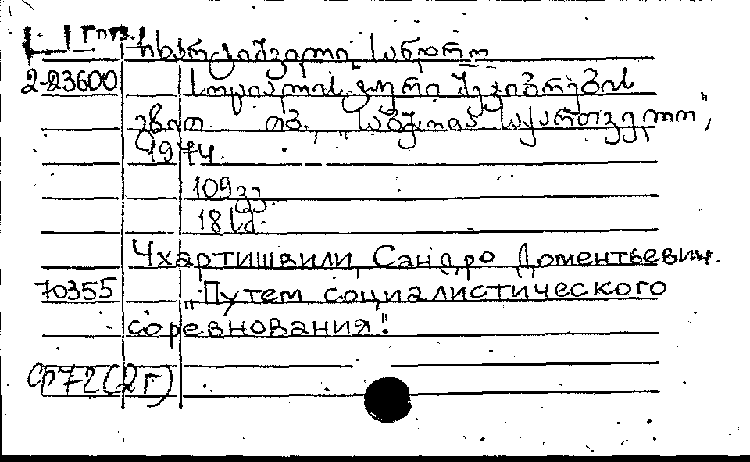 ჩხარტიშვილი, სანდრო
2-23600 სოციალისტური შეჯიბრების
გზით თბ., „საბჭოთა საქართველო",
1974.
109 გვ.
18 კაპ.
Чхартишвили, Сандро Доментьевич.
70355 „Путем социалистического
соревнования".
Ср72(2Г)